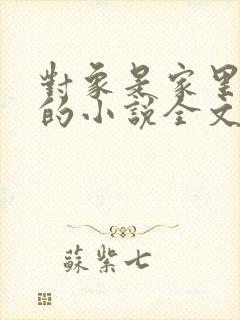 對象是家里
的小說全文
蘇紫七